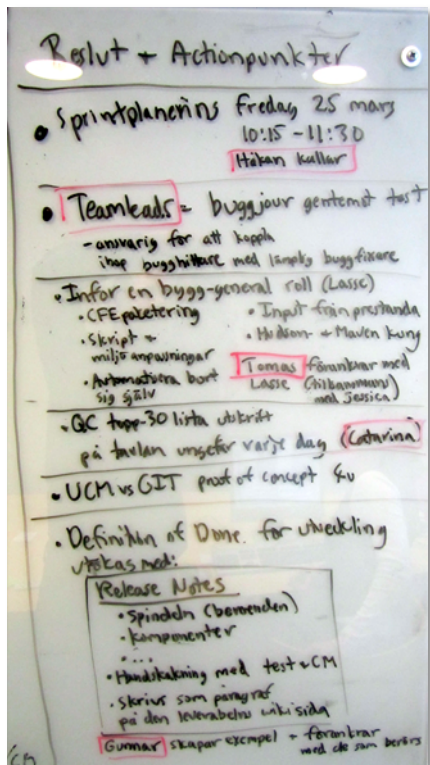 Beslut + Actionpunkter
• Sprintplanering Fredag 25 mars
10:15 - 11:30
Håkan kallar
• Teamleads = buggjour gentemot test
- ansvarig för att koppla
ihop bugghittare med lämplig buggfixare
• Inför en bygg-general roll (Lasse)
• CFE paketering
• Skript +
miljö anpassningar
• Automatisera bort
sig själv
• Input från prestanda
• Hudson- + Maven kung
Tomas förankrar med
Lasse (tillsammans
med Jessica)
• QC topp-30 lista utskrift
på tavlan ungefär varje dag (Catarina)
• UCM vs GIT proof of concept
• Definition of Done. för utveckling
utökas med:
Release Notes
• Spindeln (beroenden)
• Komponenter
• ...
• Handskakning med test + CM
• Skrivs som paragraf
på den leverabelns wikisida
Gunnar skapar exempel + förankrar
med de som berörs